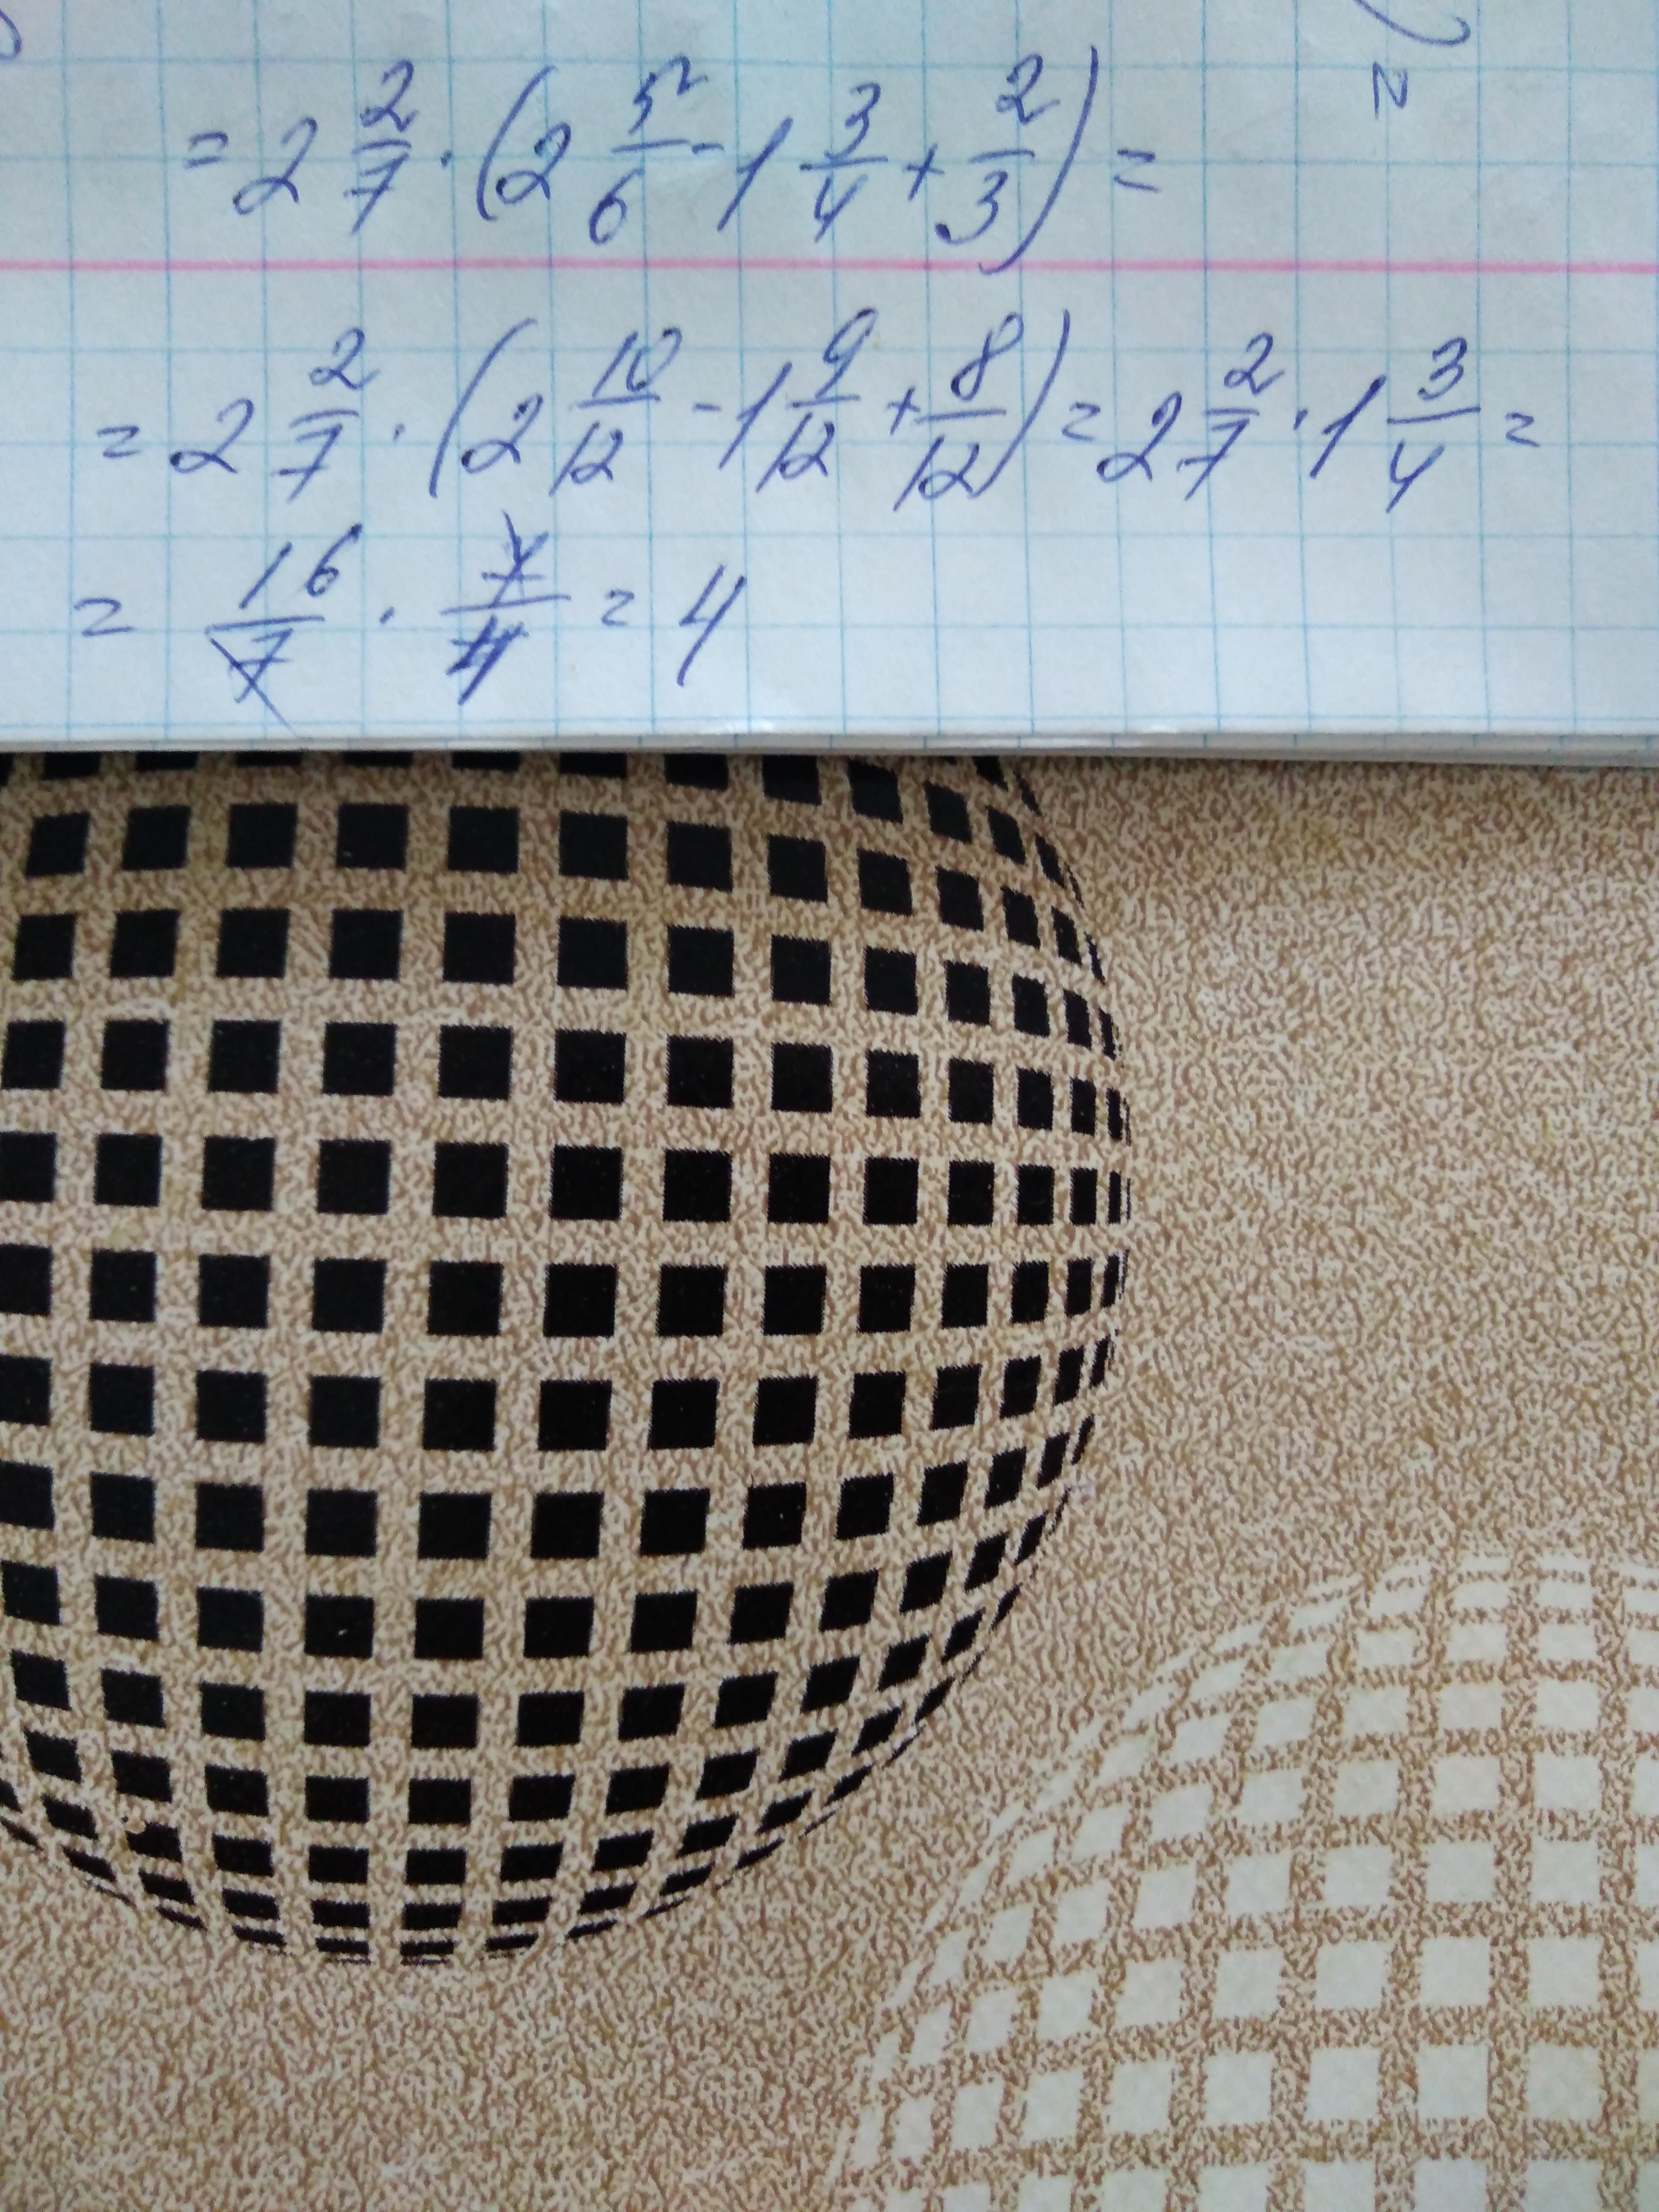 = 2 2/7 · (2 5/6 - 1 3/4 + 2/3) =
= 2 2/7 · (2 10/12 - 1 9/12 + 8/12) = 2 2/7 · 1 3/4 =
= 16/7 · 7/4 = 4